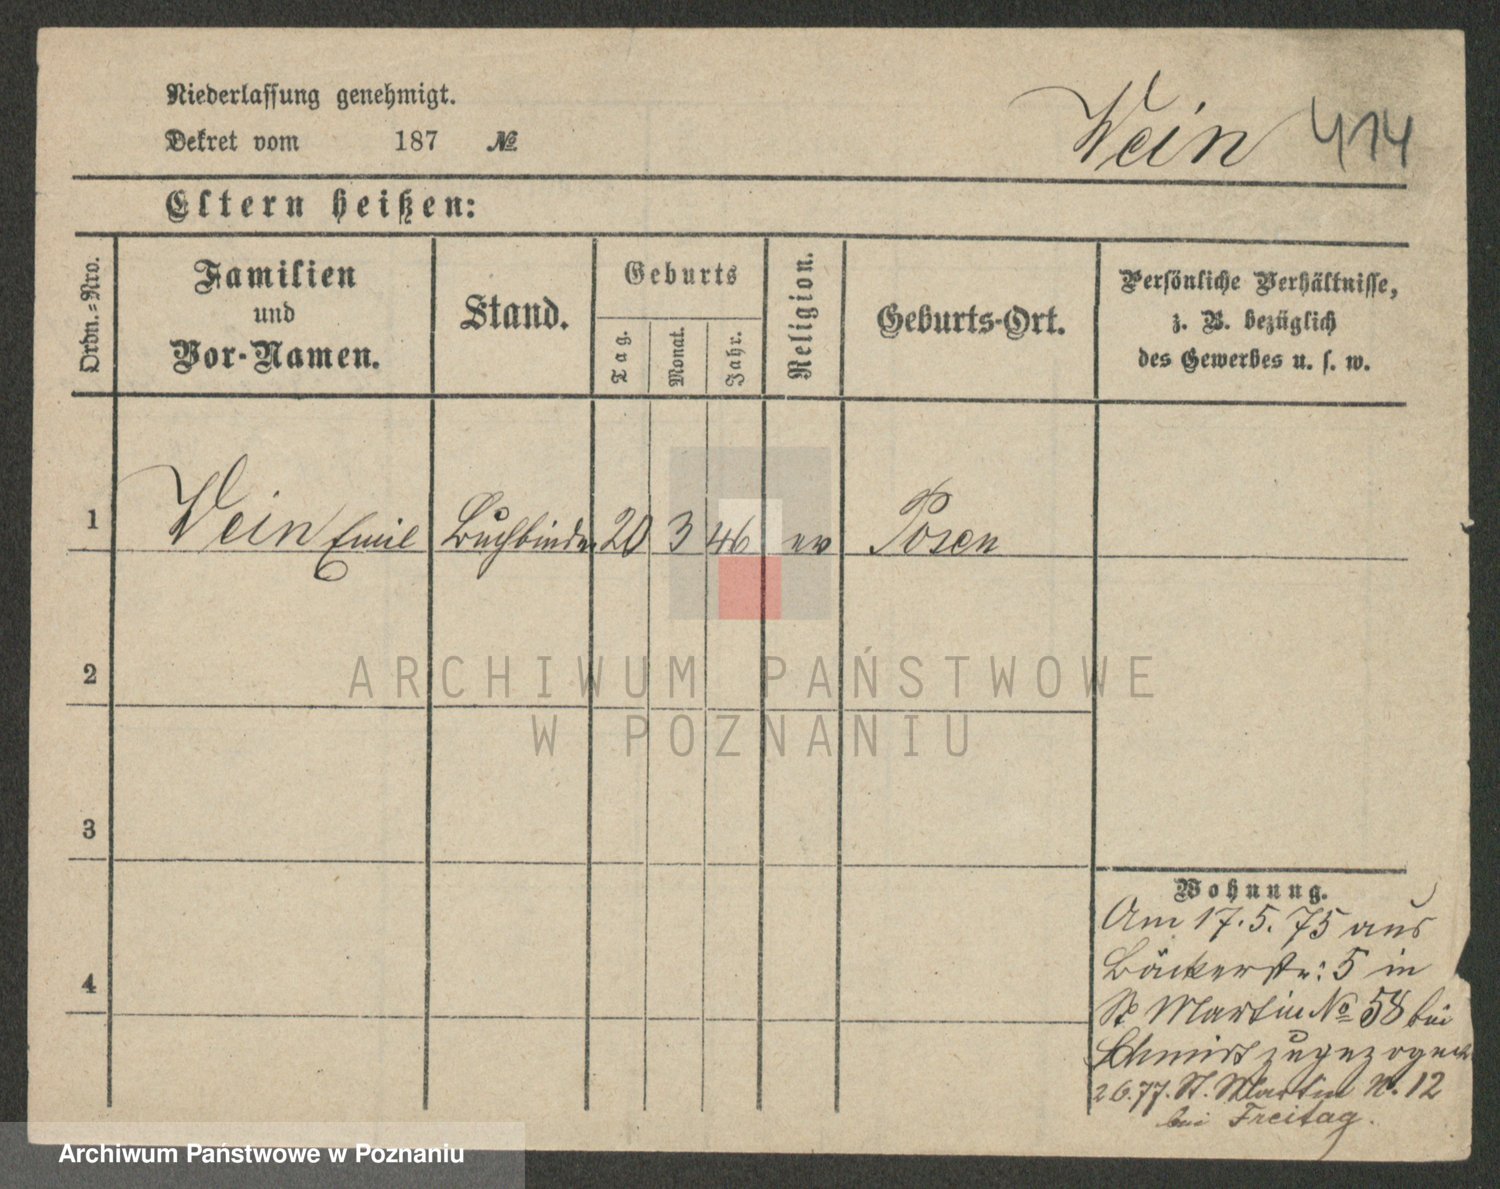 Niederlassung genehmigt.
Dekret vom 187 №
Wein 414
Eltern heißen:
Ordn.=Nro.
Familien
und
Vor-Namen.
Stand.
Geburts
Tag.
Monat.
Jahr.
Religion.
Geburts-Ort.
Persönliche Verhältnisse,
z. B. bezüglich
des Gewerbes u. s. w.
1 Wein Emil Buchbinder 20 3 46 ev Posen
2
3
4
Wohnung.
Am 17.5.75 aus
Bäckerstr: 5 in
St Martin No 58 bei
Schmidt zugezogen
2 6.77. St. Martin N. 12
bei Freitag.
ARCHIWUM PAŃSTWOWE
W POZNANIU
Archiwum Państwowe w Poznaniu